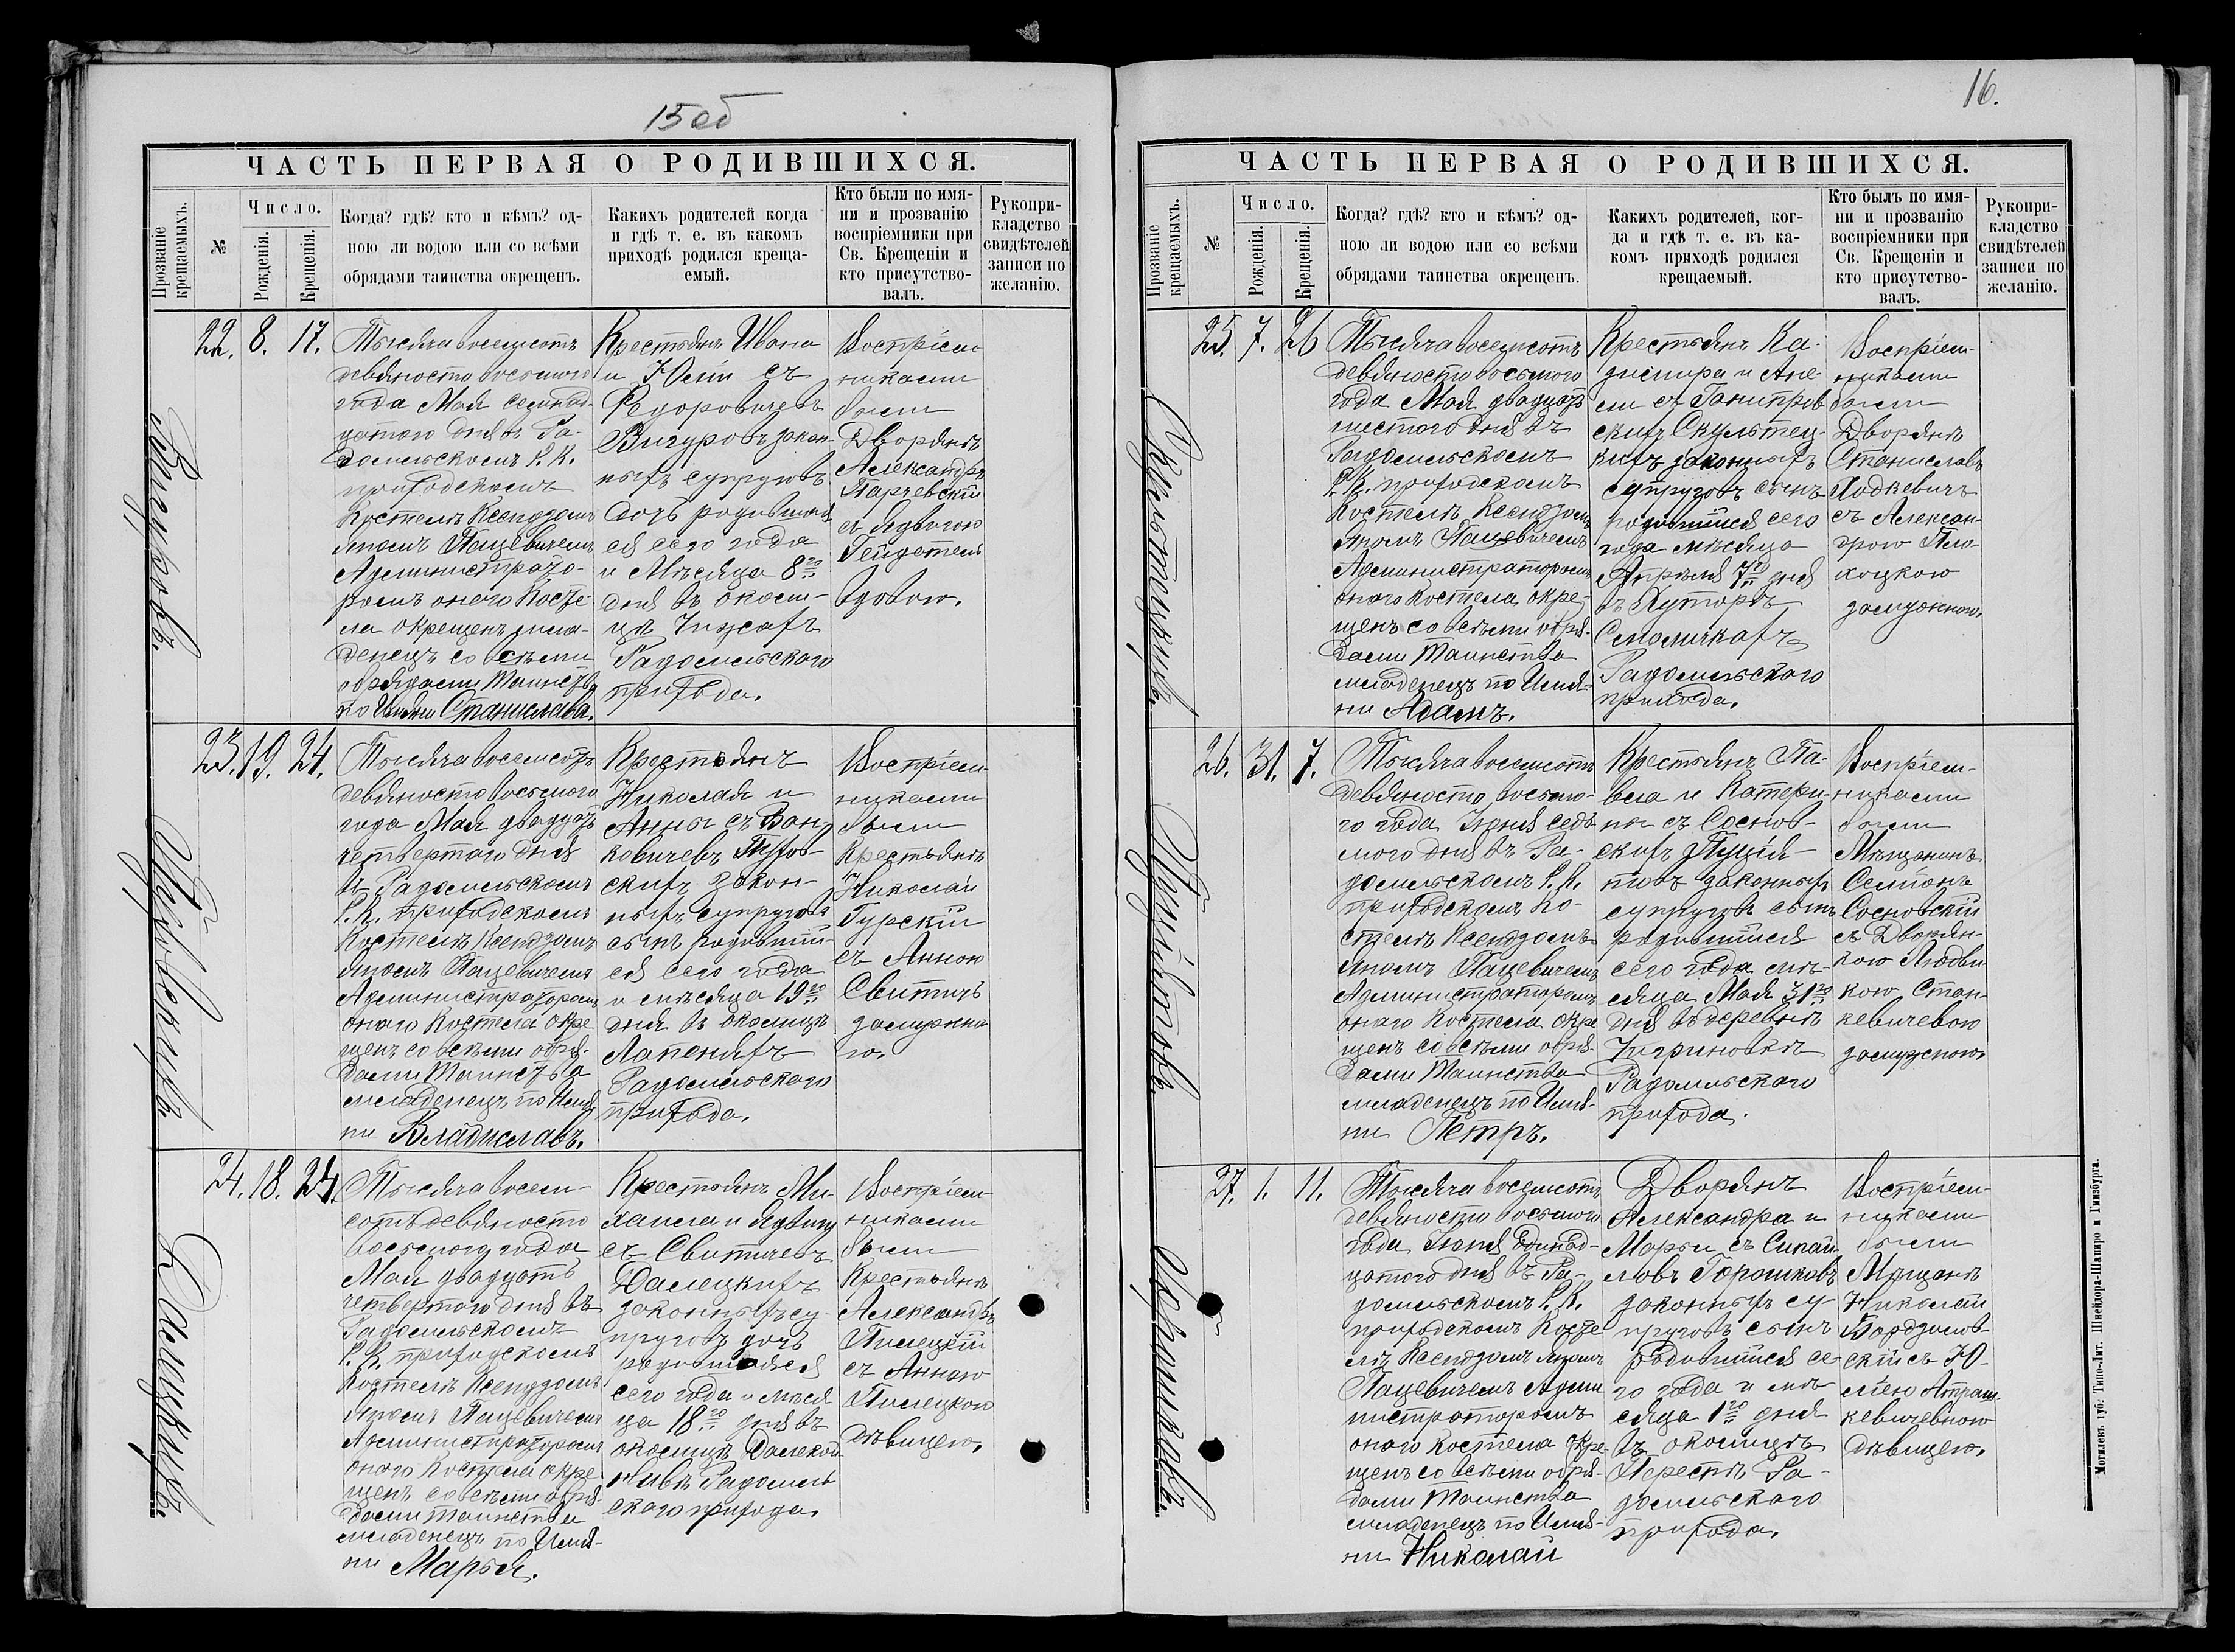 15 об
ЧАСТЬ ПЕРВАЯ О РОДИВШИХСЯ.
Прозваніе крещаемыхъ.
№
Число.
Рожденія.
Крещенія.
Когда? гдѣ? кто и кѣмъ? од-
ною ли водою или со всѣми
обрядами таинства окрещенъ.
Какихъ родителей когда
и гдѣ т. е. въ какомъ
приходѣ родился креща-
емый.
Кто были по имя-
ни и прозванію
воспріемники при
Св. Крещеніи и
кто присутство-
валъ.
Рукопри-
кладство
свидѣтелей
записи по
желанію.
Вигуровъ.
22. 8. 17.
Тысяча восемсотъ
девяносто восьмого
года Мая семнад-
цатого дня въ Ра-
домльскомъ Р. К.
приходскомъ
Костелѣ Ксендзомъ
Яномъ Пацевичемъ
Администрато-
ромъ оного Косте-
ла окрещенъ мла-
денецъ со всѣми
обрядами Таинства
по Имяни Станислава.
Крестьянъ Ивана
и Юліи съ
Федоровичевъ
Вигуровъ закон-
ныхъ супруговъ
дочь родившая-
ся сего года
и Мѣсяца 8го
дня въ околи-
цѣ Чижахъ
Радомльского
прихода.
Воспріем-
никами
были
Дворянъ
Александръ
Парчевскій
съ Ядвигою
вдовою.
Гурскихъ.
23. 19. 24.
Тысяча восемсотъ
девяносто восьмого
года Мая двадцать
четвертого дня
въ Радомльскомъ
Р. К. приходскомъ
Костелѣ Ксендзомъ
Яномъ Пацевичемъ
Администраторомъ
оного Костела окре
щенъ со всѣми обря-
дами Таинства
младенецъ по Имя-
ни Владиславъ.
Крестьянъ
Николая и
Анны съ Ван-
ковичевъ
скихъ закон-
ныхъ супруговъ
сынъ родивший-
ся сего года
и мѣсяца 19го
дня въ околицѣ
Лапеняхъ
Радомльского
прихода.
Воспріем-
никами
были
Крестьянъ
Николай
Гурскій
съ Анною
Свитичъ
замужне
ю.
Далецкихъ.
24. 18. 24.
Тысяча восем-
сотъ девяносто
восьмого года
Мая двадцать
четвертого дня въ
Радомльскомъ
Р. К. приходскомъ
Костелѣ Ксендзомъ
Яномъ Пацевичемъ
Администраторомъ
оного Костела окре
щенъ со всѣми обря-
дами Таинства
младенецъ по Имя-
ни Марья.
Крестьянъ Ми-
хаила и Ядвиги
съ Свитичевъ
Далецкихъ
законныхъ су-
пруговъ дочь
родившаяся
сего года и мѣся
ца 18го дня въ
околицѣ Далекой
Нивѣ Радомль
ского прихода.
Воспріем-
никами
были
Крестьянъ
Александръ
Пилецкій
съ Анною
Пилецкою
дѣвицею.
16.
ЧАСТЬ ПЕРВАЯ О РОДИВШИХСЯ.
Прозваніе крещаемыхъ.
№
Число.
Рожденія.
Крещенія.
Когда? гдѣ? кто и кѣмъ? од-
ною ли водою или со всѣми
обрядами таинства окрещенъ.
Какихъ родителей, ког-
да и гдѣ т. е. въ ка-
комъ приходѣ родился
крещаемый.
Кто былъ по имя-
ни и прозванію
воспріемники при
Св. Крещеніи и
кто присутство-
валъ.
Рукопри-
кладство
свидѣтелей
записи по
желанію.
Скультецкихъ.
25. 7. 26
Тысяча восемсотъ
девяносто восьмого
года Мая двадцать
шестого дня въ
Радомльскомъ
Р. К. приходскомъ
Костелѣ Ксендзомъ
Яномъ Пацевичемъ
Администраторомъ
оного Костела окре-
щенъ со всѣми обря-
дами Таинства
младенецъ по Имя-
ни Адамъ.
Крестьянъ Ка-
зимира и Ане-
ли съ
скихъ Скультец-
кихъ законныхъ
супруговъ сынъ
родившийся сего
года мѣсяца
Апрѣля 7го дня
въ Хуторѣ
Смоличкахъ
Радомльского
прихода.
Воспріем-
никами
были
Дворянъ
Станиславъ
Ходкевичъ
съ Алексан-
дрою Пло-
хоцкою
замужною.
26. 31. 7.
Тысяча восемсотъ
девяносто восьмо-
го года Іюня седь
мого дня въ Ра-
домльскомъ Р. К.
приходскомъ Ко-
стелѣ Ксендзомъ
Яномъ Пацевичемъ
Администраторомъ
оного Костела окре
щенъ со всѣми обря-
дами Таинства
младенецъ по Имя-
ни Петръ.
Крестьянъ Па-
вла и Катери-
ны съ Соснов-
скихъ
законныхъ
супруговъ сынъ
родившийся
сего года мѣ-
сяца Мая 31го
дня въ деревнѣ
Чигриновкѣ
Радомльского
прихода.
Воспріем-
никами
были
Мѣщанинъ
Семіонъ
Сосновскій
съ Дворян-
кою Людви-
кою Стан-
кевичевою
замужною.
Горошковъ.
27. 1. 11.
Тысяча восемсотъ
девяносто восьмого
года Іюня одинад-
цатого дня въ Ра-
домльскомъ Р. К.
приходскомъ Косте
лѣ Ксендзомъ Яномъ
Пацевичемъ Адми
нистраторомъ
оного Костела окре
щенъ со всѣми обря-
дами Таинства
младенецъ по Имя-
ни Николай
Дворянъ
Александра и
Марьи съ Сипай-
ловъ Горошковъ
законныхъ су-
пруговъ сынъ
родившийся се-
го года и мѣ-
сяца 1го дня
въ околицѣ
Перестѣ Ра-
домльского
прихода.
Воспріем-
никами
были
Мѣщанъ
Николай
Бордзилов-
скій съ Ю-
ліею Атраш-
кевичевною
дѣвицею.
Могилевъ губ. Типо-Лит. Шнейдора-Шапиро и Гинзбурга.